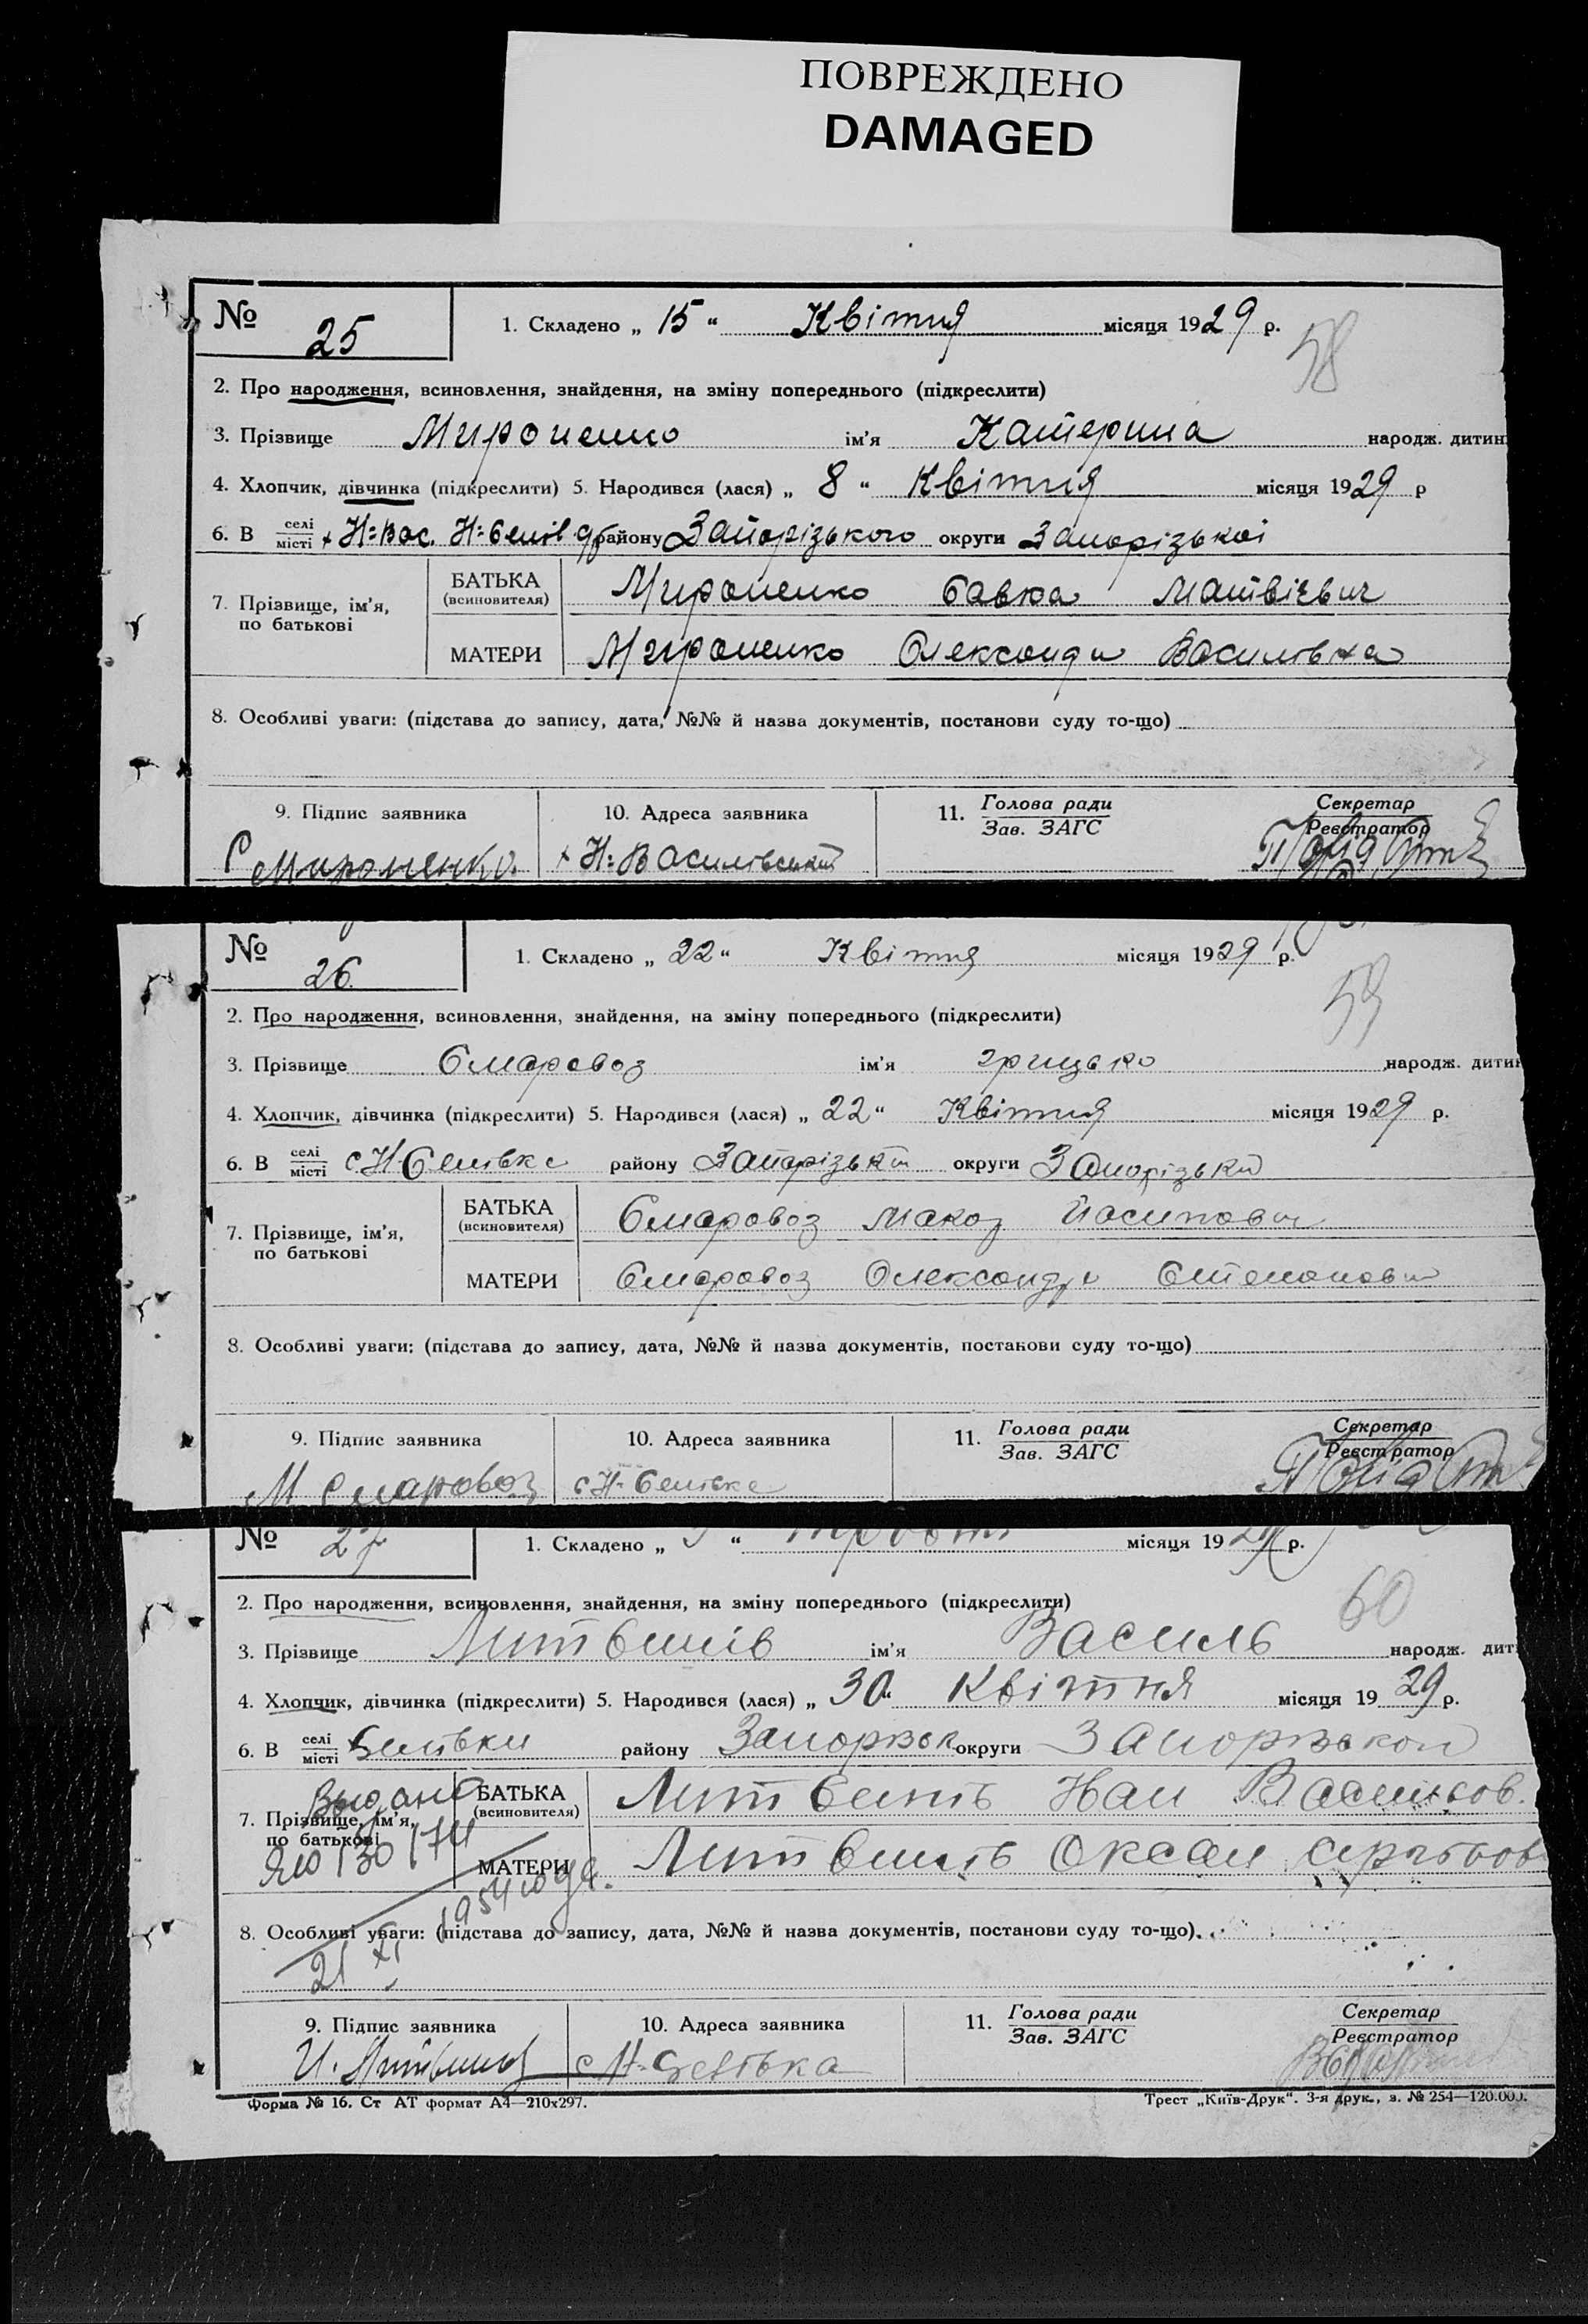 ПОВРЕЖДЕНО
DAMAGED
№ 25
1. Складено „ 15 “ Квітня місяця 1929 р.
58
2. Про народження, всиновлення, знайдення, на зміну попереднього (підкреслити)
3. Прізвище Мироненко ім’я Катерина народж. дитин
4. Хлопчик, дівчинка (підкреслити) 5. Народився (лася) „ 8 “ Квітня місяця 1929 р
6. В селі місті х Н=Вас. району Запорізького округи Запорізької
7. Прізвище, ім’я, по батькові
БАТЬКА (всиновителя) Мироненко Савка Матвієвич
МАТЕРИ Мироненко Олександи Василівна
8. Особливі уваги: (підстава до запису, дата, №№ й назва документів, постанови суду то-що)
9. Підпис заявника 10. Адреса заявника 11. Голова ради Зав. ЗАГС Секретар Реєстратор
С Мироненко. х Н=Василівський
№ 26
1. Складено „ 22 “ Квітня місяця 1929 р.
59
2. Про народження, всиновлення, знайдення, на зміну попереднього (підкреслити)
3. Прізвище Смаровоз ім’я грицько народж. дитин
4. Хлопчик, дівчинка (підкреслити) 5. Народився (лася) „ 22 “ Квітня місяця 1929 р.
6. В селі місті с Н-Селівке району округи
7. Прізвище, ім’я, по батькові
БАТЬКА (всиновителя) Смаровоз Йосипович
МАТЕРИ Смаровоз
8. Особливі уваги: (підстава до запису, дата, №№ й назва документів, постанови суду то-що)
9. Підпис заявника 10. Адреса заявника 11. Голова ради Зав. ЗАГС Секретар Реєстратор
М Смаровоз с Н-Селівке
№ 27
1. Складено „ “ місяця 1929 р.
60
2. Про народження, всиновлення, знайдення, на зміну попереднього (підкреслити)
3. Прізвище ім’я Василь народж. дит
4. Хлопчик, дівчинка (підкреслити) 5. Народився (лася) „ 30 “ Квітня місяця 19 29 р.
6. В селі місті Селівки району округи
Выдано
7. Прізвище, ім’я, по батькові
БАТЬКА (всиновителя)
МАТЕРИ Оксан
8. Особливі уваги: (підстава до запису, дата, №№ й назва документів, постанови суду то-що)
21 XI
9. Підпис заявника 10. Адреса заявника 11. Голова ради Зав. ЗАГС Секретар Реєстратор
с Н-Селівка
Форма № 16. Ст АТ формат А4—210х297. Трест „Київ-Друк“. 3-я друк., з. № 254—120.000.